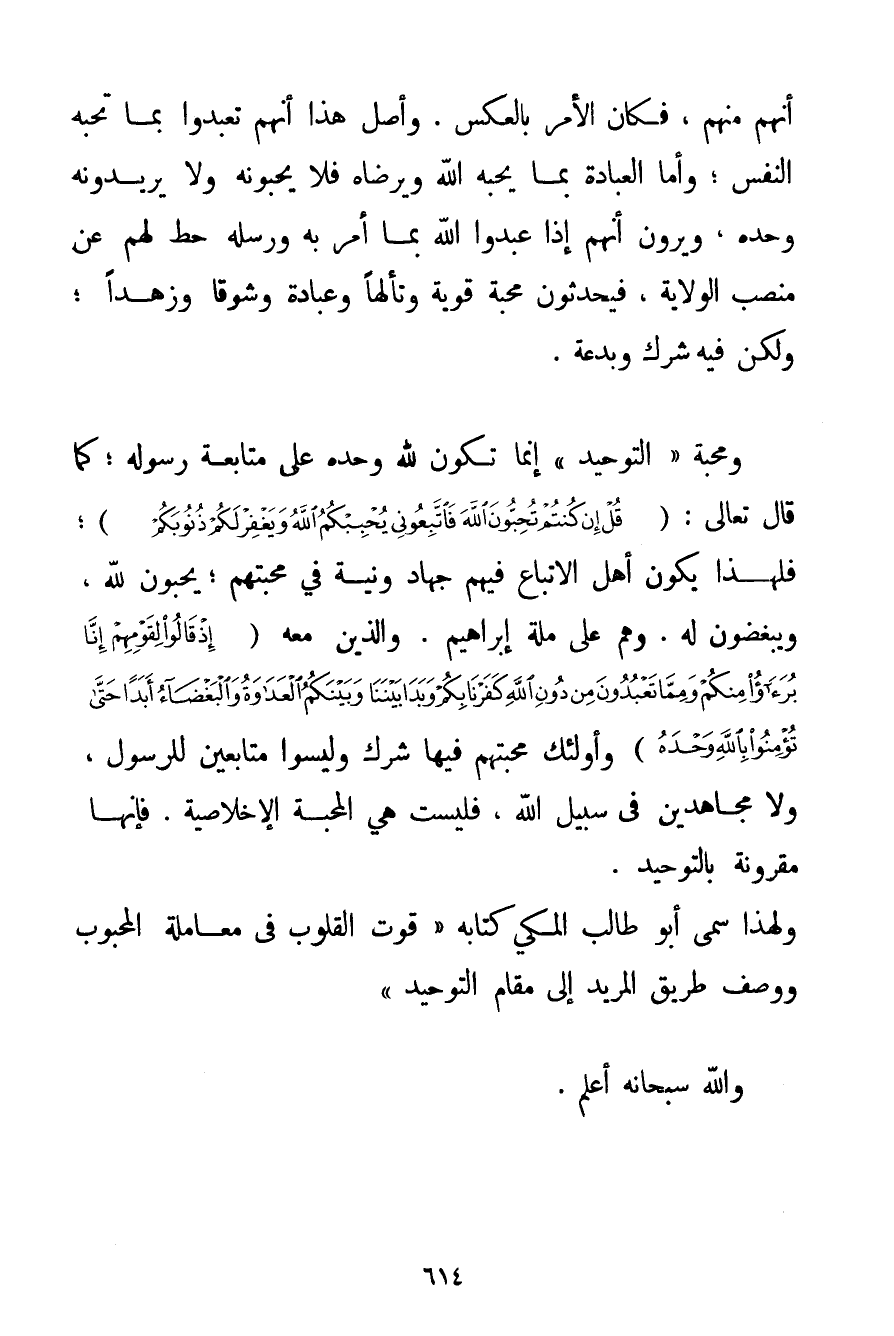 أنهم منهم ، فكان الأمر بالعكس . وأصل هذا أنهم تعبدوا بما تحبه
النفس ؛ وأما العبادة بما يحبه الله ويرضاه فلا يحبونه ولا يريدونه
وحده ، ويرون أنهم إذا عبدوا الله بما أمر به ورسله حط لهم عن
منصب الولاية ، فيحدثون محبة قوية وتألهاً وعبادة وشوقا وزهداً ؛
ولكن فيه شرك وبدعة .
ومحبة « التوحيد » إنما تكون لله وحده على متابعة رسوله ؛ كما
قال تعالى : ( قُلْ إِن كُنتُمْ تُحِبُّونَ ٱللَّهَ فَٱتَّبِعُونِى يُحْبِبْكُمُ ٱللَّهُ وَيَغْفِرْ لَكُمْ ذُنُوبَكُمْ ) ؛
فلهذا يكون أهل الاتباع فيهم جهاد ونية في محبتهم ؛ يحبون لله ،
ويبغضون له . وهم على ملة إبراهيم . والذين معه ( إِذْ قَالُوا۟ لِقَوْمِهِمْ إِنَّا
بُرَءَٰٓؤُا۟ مِنكُمْ وَمِمَّا تَعْبُدُونَ مِن دُونِ ٱللَّهِ كَفَرْنَا بِكُمْ وَبَدَا بَيْنَنَا وَبَيْنَكُمُ ٱلْعَدَٰوَةُ وَٱلْبَغْضَآءُ أَبَدًا حَتَّىٰ
تُؤْمِنُوا۟ بِٱللَّهِ وَحْدَهُۥ ) وأولئك محبتهم فيها شرك وليسوا متابعين للرسول ،
ولا مجاهدين فى سبيل الله ، فليست هي المحبة الإخلاصية . فإنها
مقرونة بالتوحيد .
ولهذا سمى أبو طالب المكي كتابه « قوت القلوب فى معاملة المحبوب
ووصف طريق المريد إلى مقام التوحيد »
والله سبحانه أعلم .
٦١٤